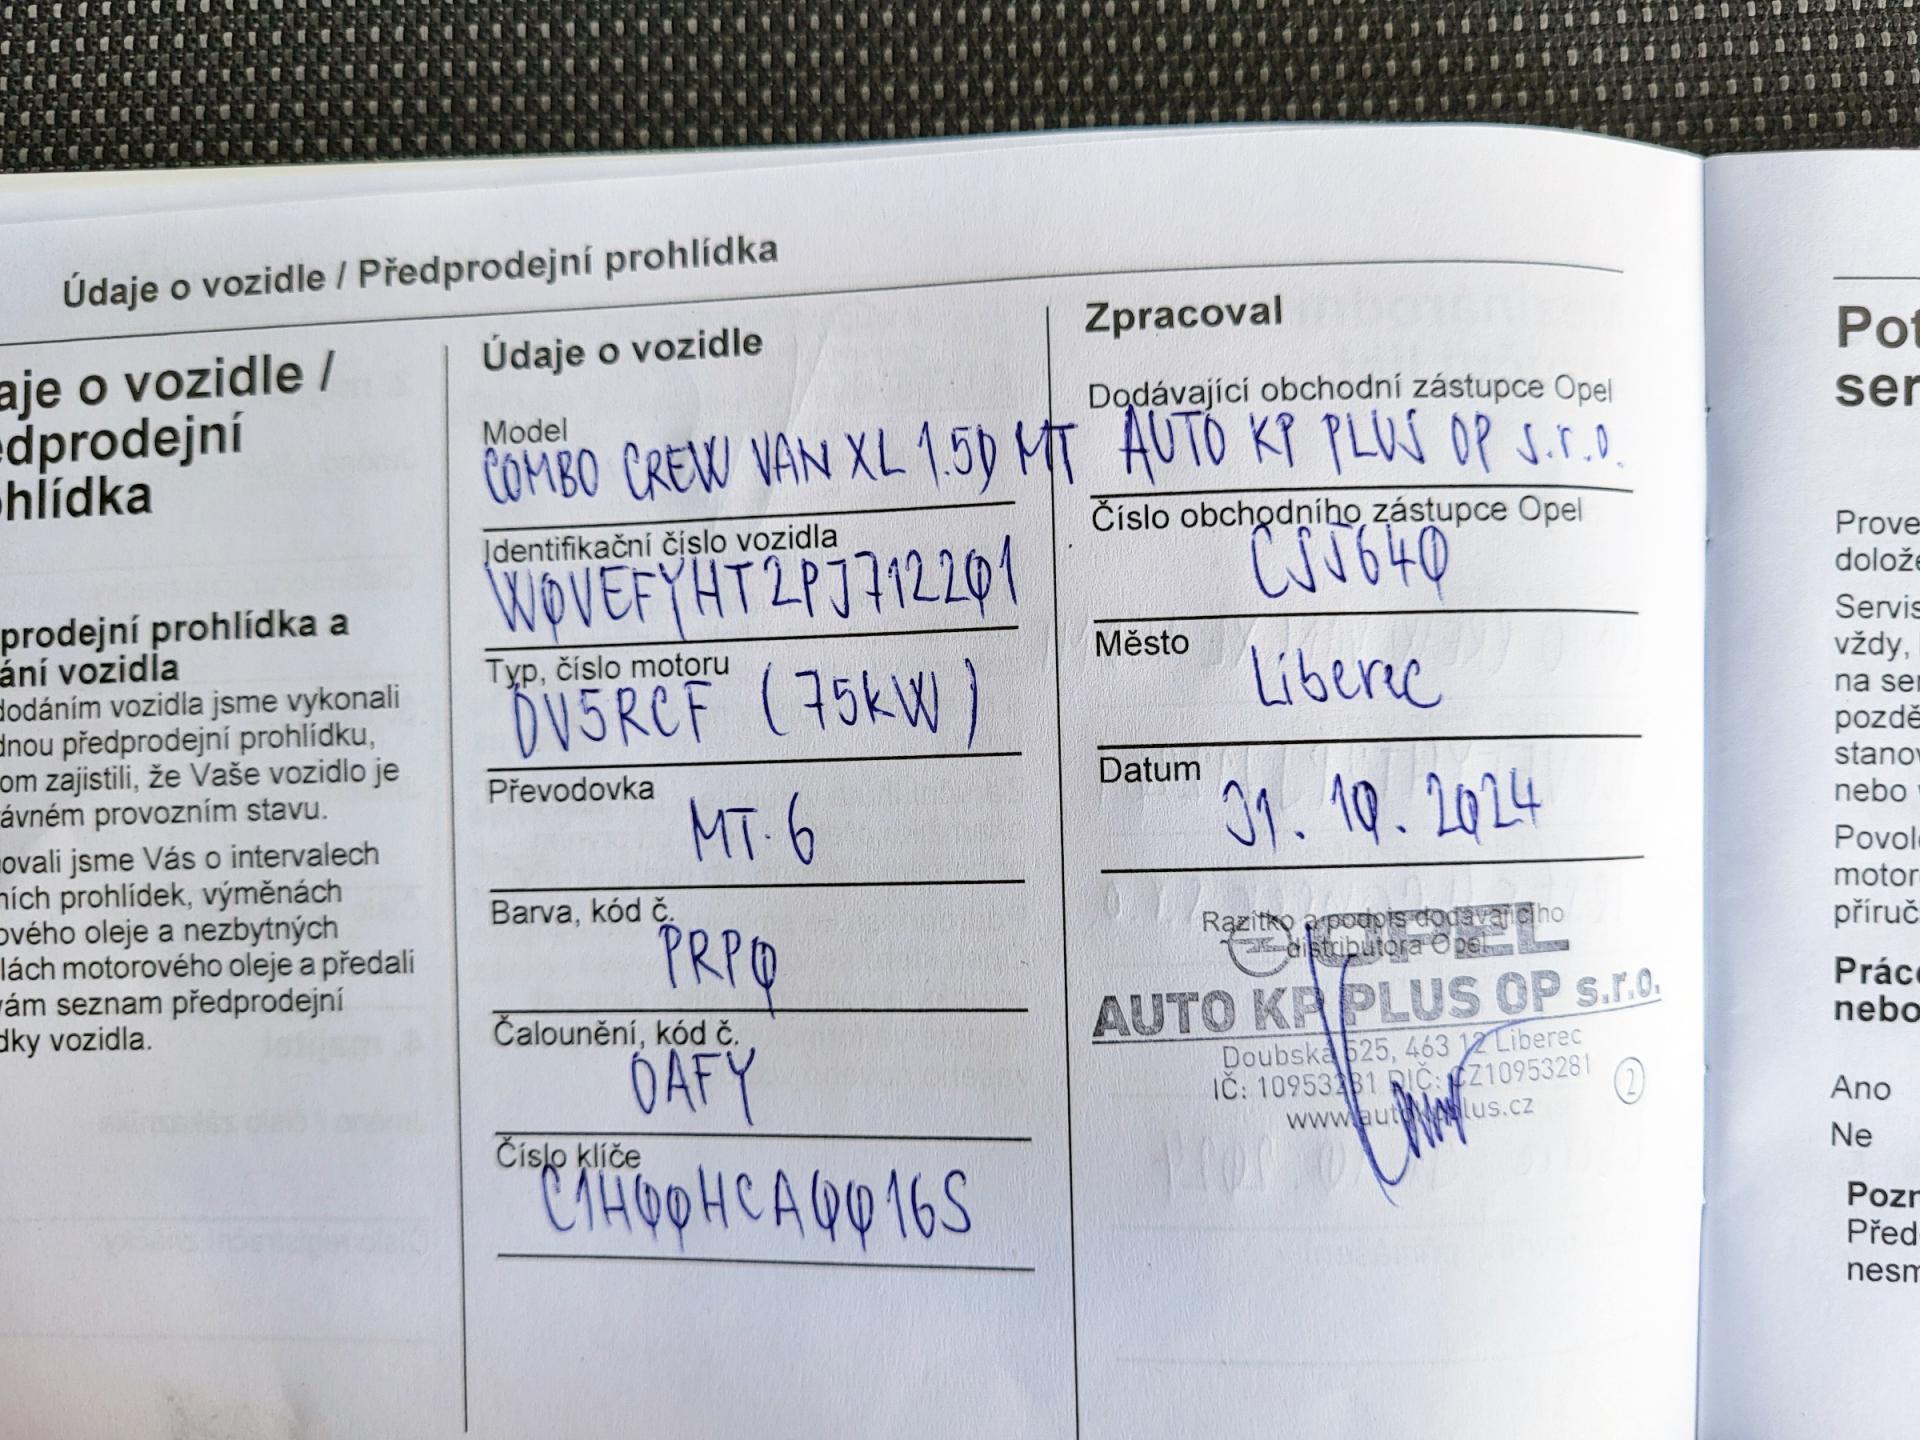 Údaje o vozidle / Předprodejní prohlídka
aje o vozidle /
edprodejní
ohlídka
prodejní prohlídka a
ání vozidla
dodáním vozidla jsme vykonali
dnou předprodejní prohlídku,
om zajistili, že Vaše vozidlo je
ávném provozním stavu.
ovali jsme Vás o intervalech
ních prohlídek, výměnách
ového oleje a nezbytných
lách motorového oleje a předali
vám seznam předprodejní
dky vozidla.
Údaje o vozidle
Model
COMBO CREW VAN XL 1.5D MT
Identifikační číslo vozidla
W0VEFYHT2PJ712201
Typ, číslo motoru
DV5RCF (75kW)
Převodovka
MT-6
Barva, kód č.
PRP0
Čalounění, kód č.
0AFY
Číslo klíče
C1H00HCA0016S
Zpracoval
Dodávající obchodní zástupce Opel
AUTO KP PLUS OP s.r.o.
Číslo obchodního zástupce Opel
CSJ640
Město
Liberec
Datum
31. 10. 2024
Razítko a podpis dodávajícího
distributora Opel
OPEL
AUTO KP PLUS OP s.r.o.
Doubská 525, 463 12 Liberec
IČ: 10953281 DIČ: CZ10953281
www.autokpplus.cz
2
Pot
ser
Prove
dolože
Servis
vždy,
na ser
pozdě
stanov
nebo v
Povolo
motor
příruč
Práce
nebo
Ano
Ne
Pozn
Před
nesm